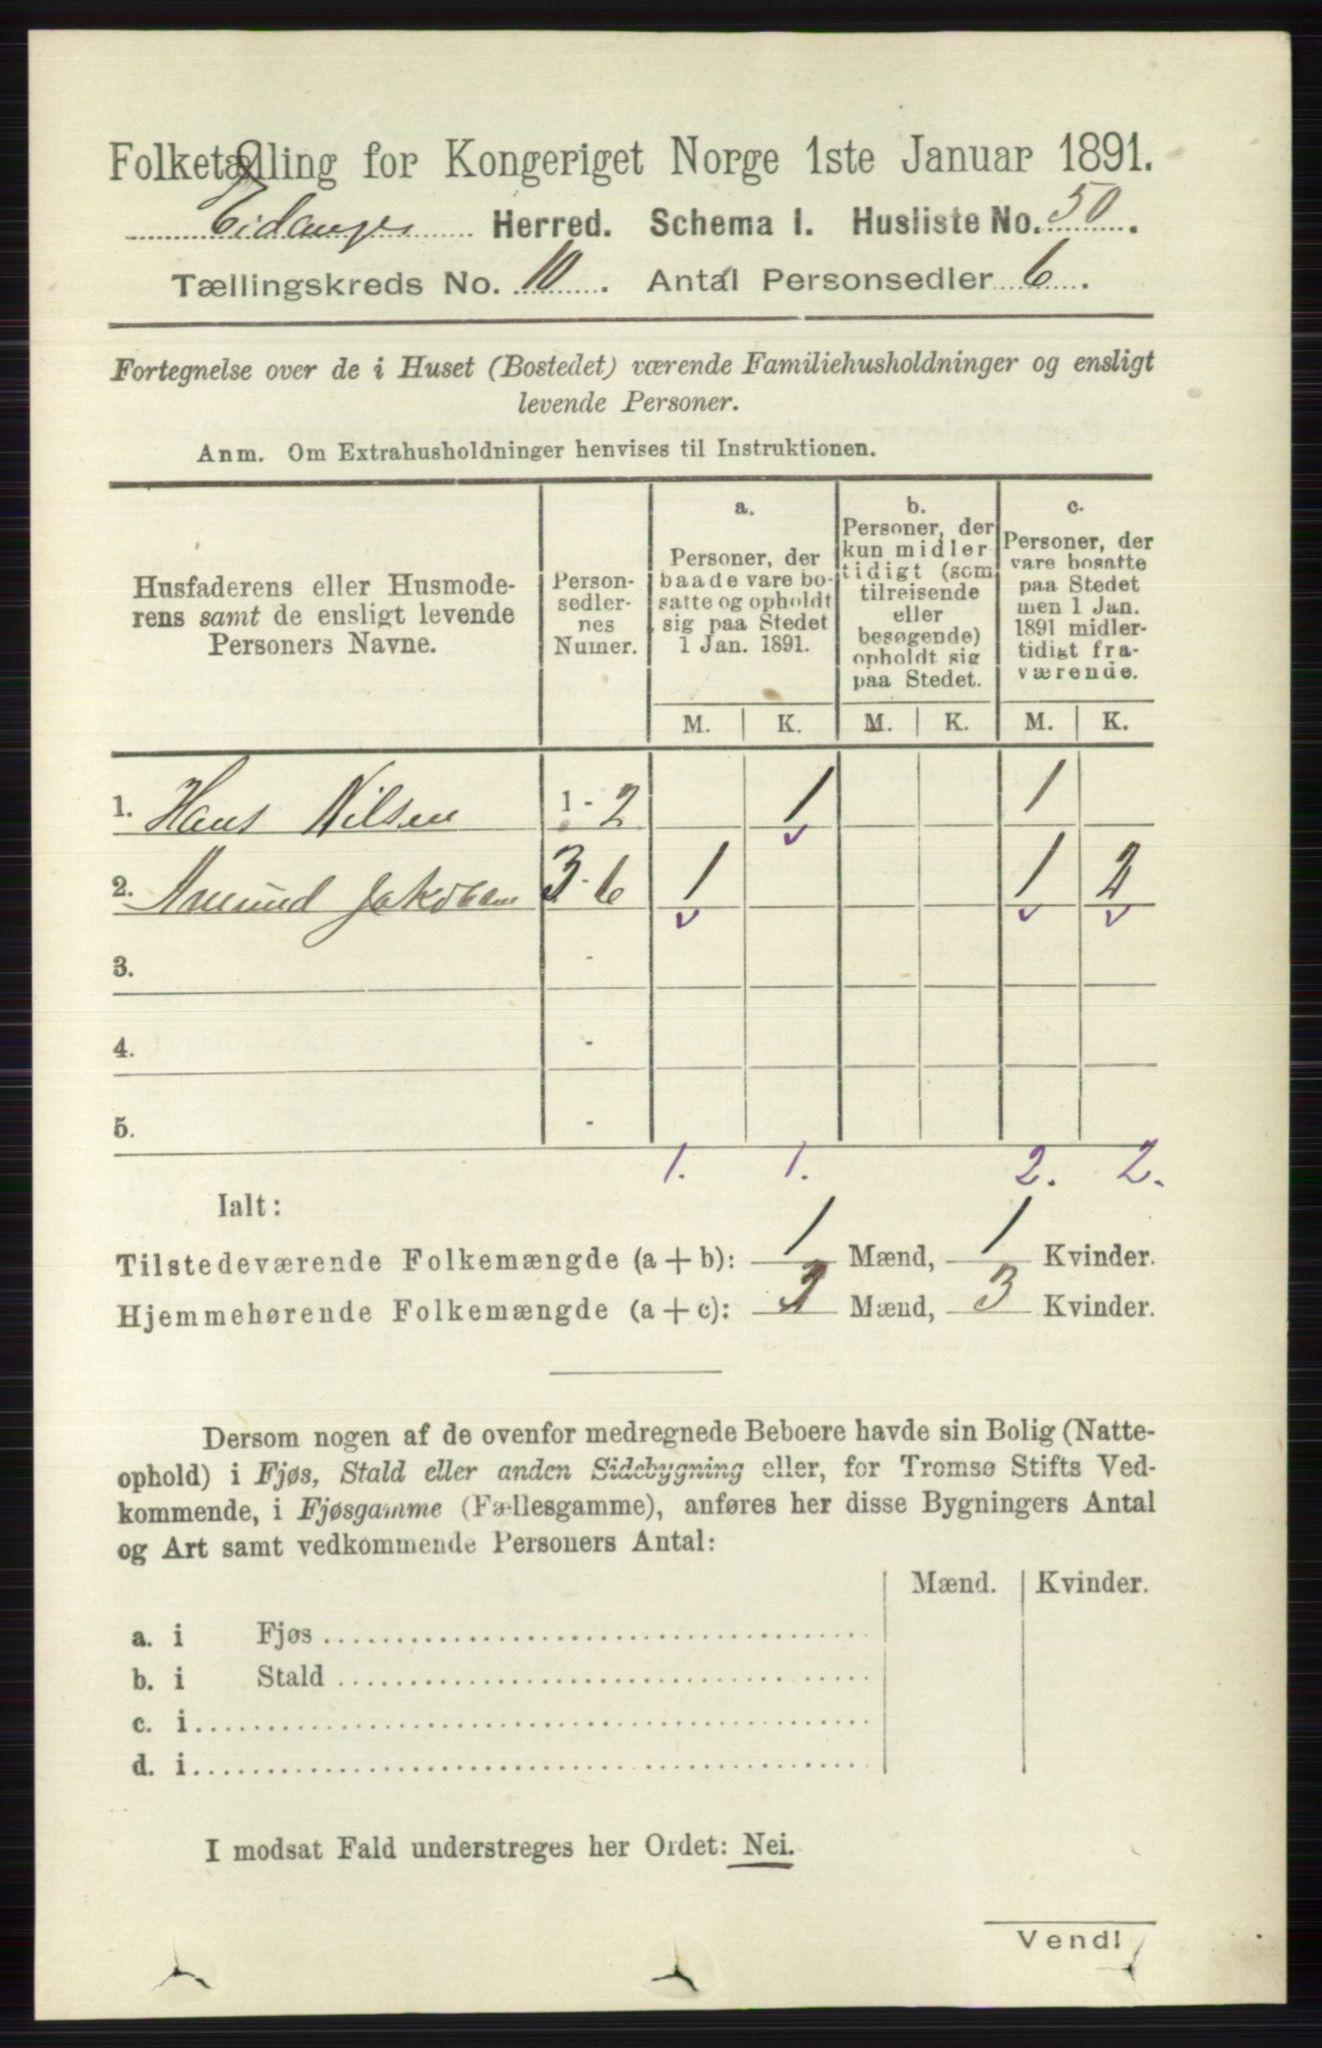 Folketælling for Kongeriget Norge 1ste Januar 1891.
Eidanger Herred. Schema I. Husliste No. 50.
Tællingskreds No. 10. Antal Personsedler 6.
Fortegnelse over de i Huset (Bostedet) værende Familiehusholdninger og ensligt
levende Personer.
Anm. Om Extrahusholdninger henvises til Instruktionen.
Husfaderens eller Husmode-
rens samt de ensligt levende
Personers Navne.
Person-
sedler-
nes
Numer.
a.
Personer, der
baade vare bo-
satte og opholdt
sig paa Stedet
1 Jan. 1891.
b.
Personer, der
kun midler-
tidigt (som
tilreisende
eller
besøgende)
opholdt sig
paa Stedet.
c.
Personer, der
vare bosatte
paa Stedet
men 1 Jan.
1891 midler-
tidigt fra-
værende.
M. K. M. K. M. K.
1. Hans Nilsen 1 - 2 1 1
2. Amund Jakobsen 3 - 6 1 1 2
3. -
4. -
5. -
1. 1. 2. 2.
Ialt:
Tilstedeværende Folkemængde (a + b): 1 Mænd, 1 Kvinder.
Hjemmehørende Folkemængde (a + c): 3 Mænd, 3 Kvinder.
Dersom nogen af de ovenfor medregnede Beboere havde sin Bolig (Natte-
ophold) i Fjøs, Stald eller anden Sidebygning eller, for Tromsø Stifts Ved-
kommende, i Fjøsgamme (Fællesgamme), anføres her disse Bygningers Antal
og Art samt vedkommende Personers Antal:
Mænd. Kvinder.
a. i Fjøs
b. i Stald
c. i
d. i
I modsat Fald understreges her Ordet: Nei.
Vend!